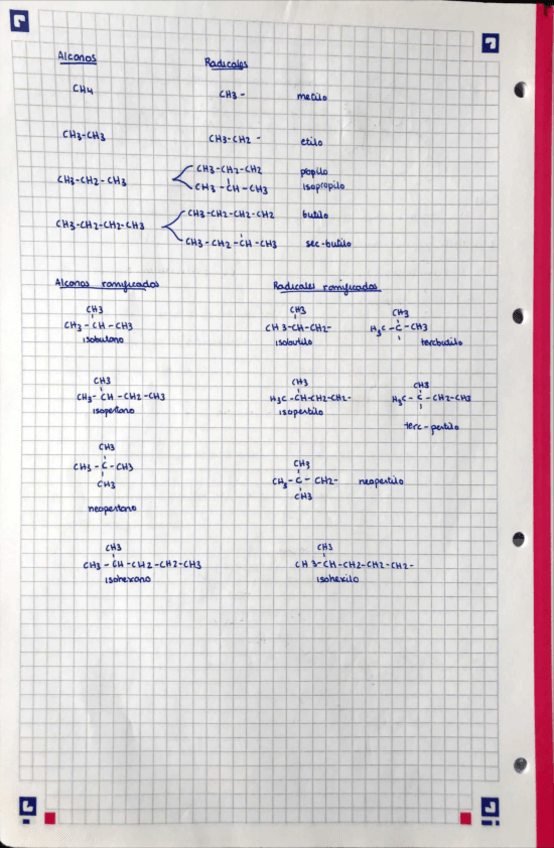 Alcanos Radicales
CH4 CH3- metilo
CH3-CH3 CH3-CH2- etilo
CH3-CH2-CH3 CH3-CH2-CH2 popilo
CH3-CH-CH3 isopropilo
CH3-CH2-CH2-CH3 CH3-CH2-CH2-CH2 butilo
CH3-CH2-CH-CH3 sec-butilo
Alcanos ramificados Radicales ramificados
CH3 CH3 CH3
CH3-CH-CH3 CH3-CH-CH2- H3C-C-CH3
isobutano isobutilo tercbutilo
CH3 CH3 CH3
CH3-CH-CH2-CH3 H3C-CH-CH2-CH2- H3C-C-CH2-CH3
isopentano isopentilo terc-pentilo
CH3 CH3
CH3-C-CH3 CH3-C-CH2- neopentilo
CH3 CH3
neopentano
CH3 CH3
CH3-CH-CH2-CH2-CH3 CH3-CH-CH2-CH2-CH2-
isohexano isohexilo